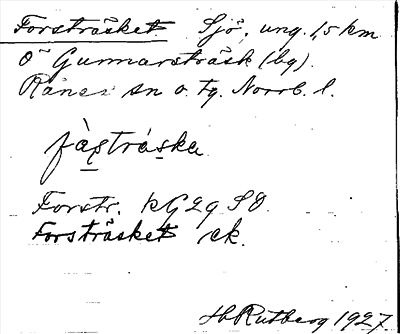 Forsträsket. Sjö, ung. 1,5 km
Ö Gunnarsträsk (by).
Råneå sn o. tg. Norrb. l.
fàs̱trás̱ka
Forstr. kG2q SO.
Forsträsket ek.
H. Rutberg 1927.